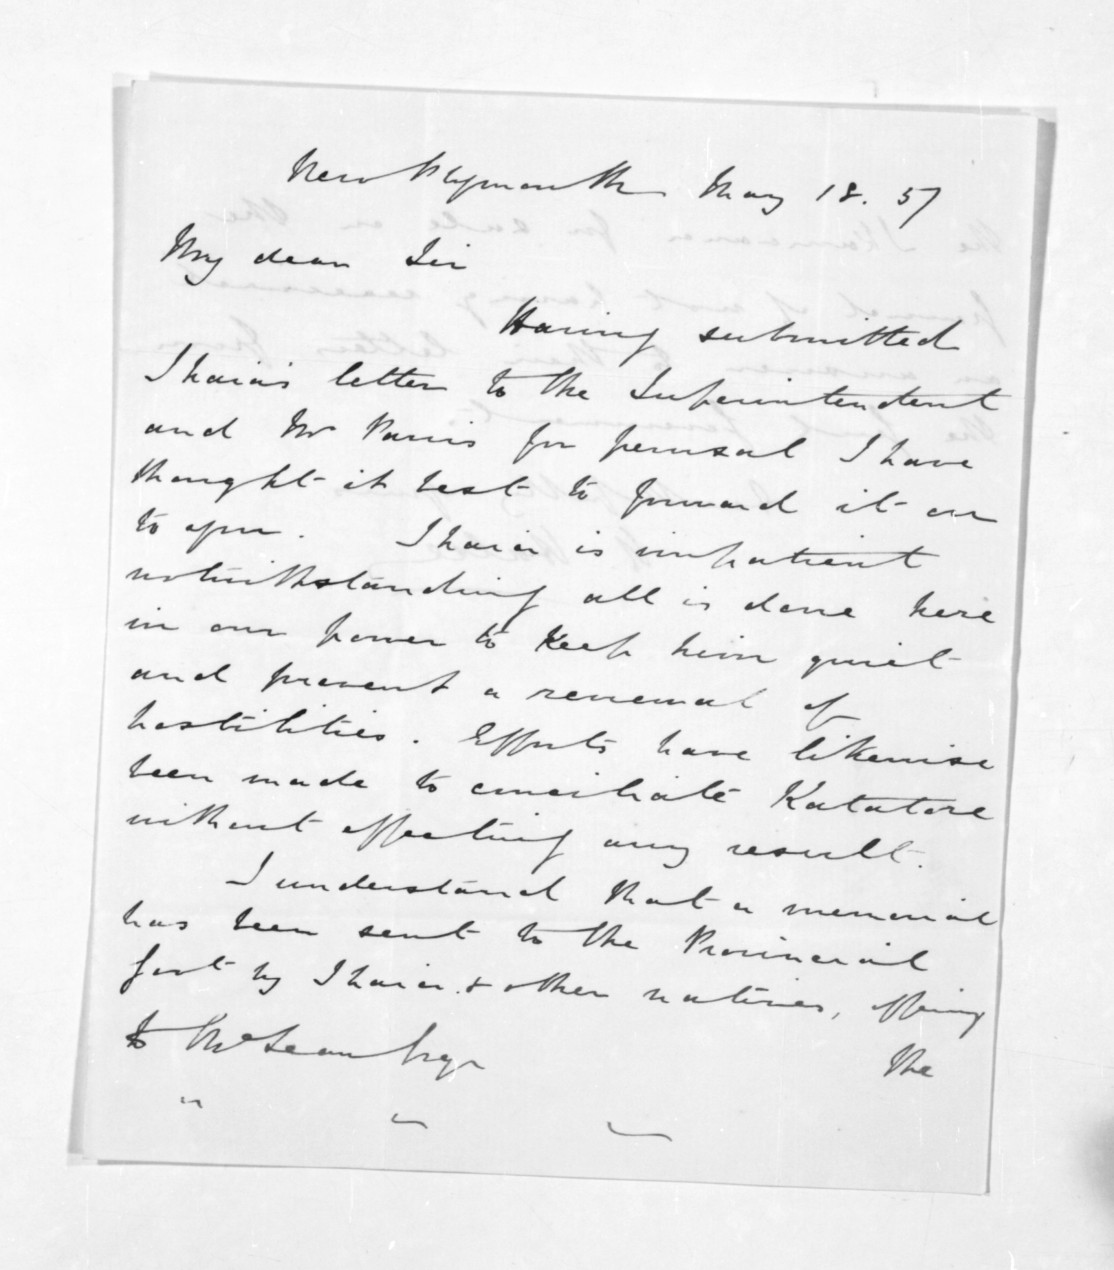 New Plymouth May 18. 57
My dear Sir
Having submitted
Ihaia's letter to the Superintendent
and Mr Parris for perusal I have
thought it best to forward it on
to you. Ihaia is impatient
notwithstanding all is done here
in our power to keep him quiet
and prevent a renewal of
hostilities. Efforts have likewise
been made to conciliate Katatore
without effecting any result.
I understand that a memorial
has been sent to the Provincial
Govt by Ihaia & other natives, offering
to McLean Esqr
the